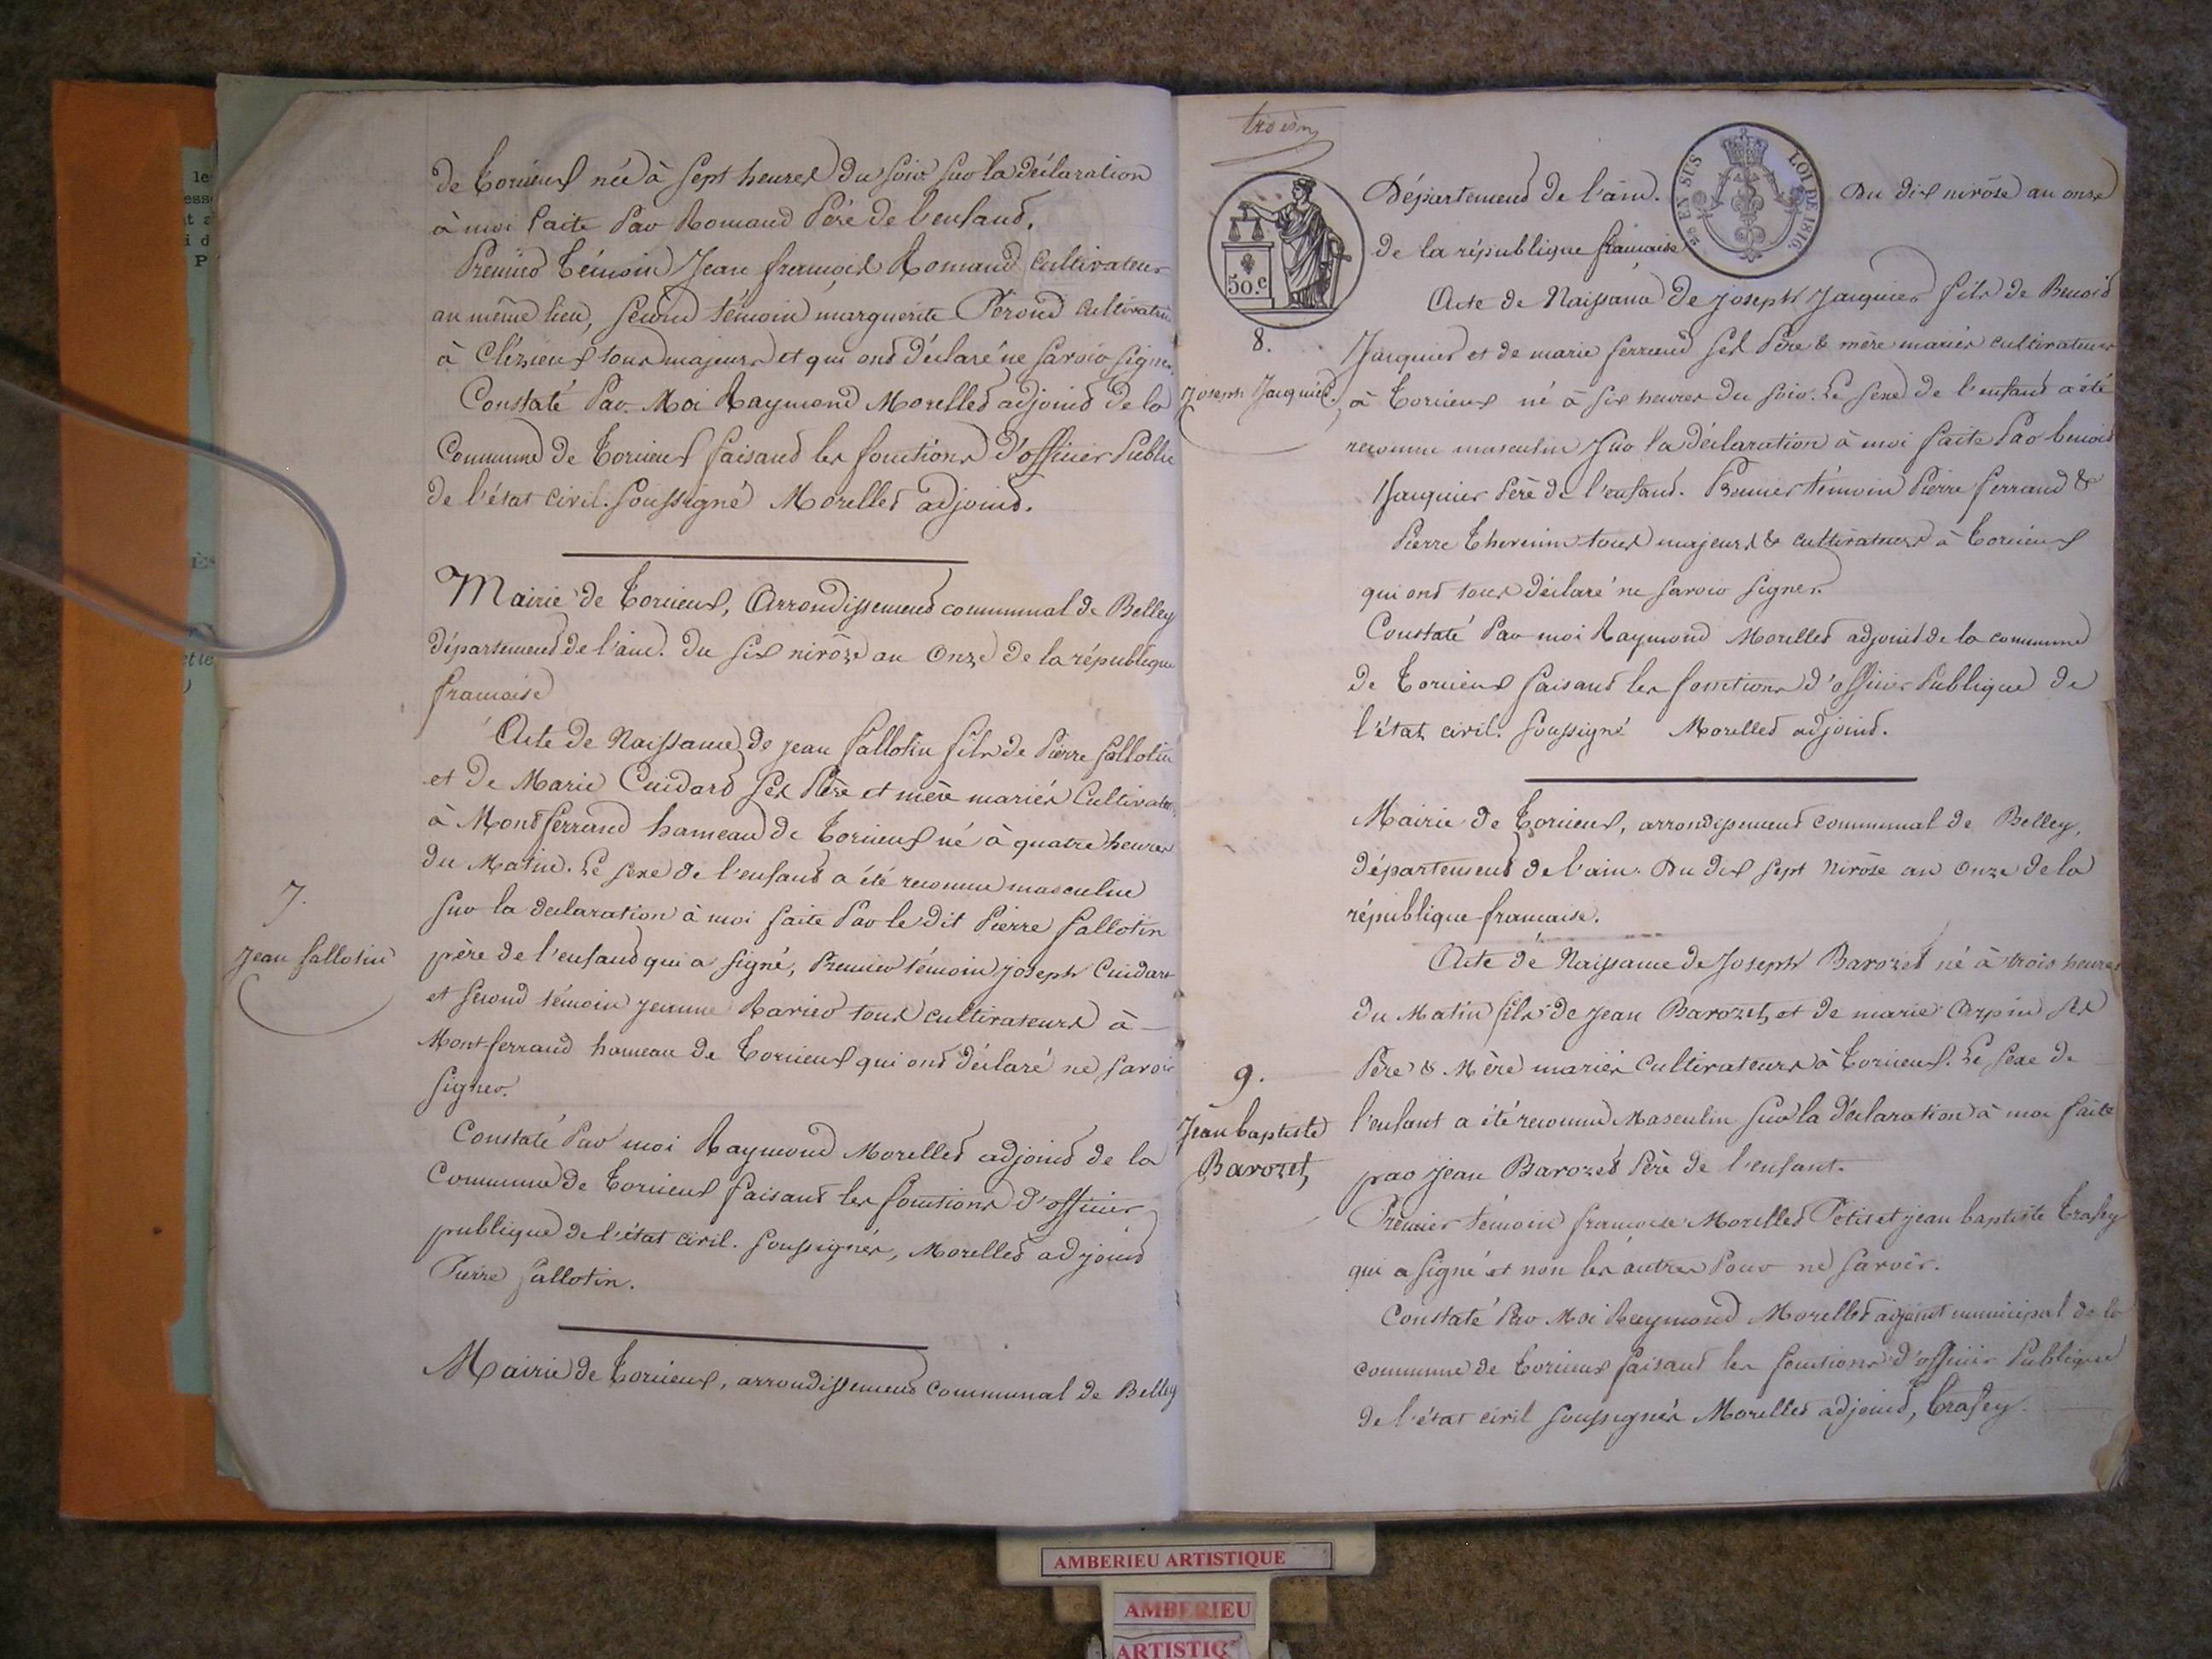 de Torcieux née à sept heures du soir sur la déclaration
à moi faite par Romand Père de l'enfant.
Premier témoin Jean françois Romand Cultivateur
au même lieu, second témoin marguerite Pérond cultivatrice
à Clézieux tous majeurs et qui ont déclaré ne savoir signer.
Constaté Par Moi Raymond Morellet adjoint de la
Commune de Torcieux faisant les fonctions d'officier Public
de l'état civil. soussigné Morellet adjoint.
Mairie de Torcieux, Arrondissement communal de Belley
département de l'ain. du six nivôze an Onze de la république
française
Acte de Naissance de jean fallotin fils de Pierre fallotin
et de Marie Cuidard ses Père et mère mariés Cultivateurs
à Montferrand hameau de Torcieux né à quatre heures
du Matin. Le sexe de l'enfant a été reconnu masculin
sur la declaration à moi faite Par le dit Pierre fallotin
7.
Jean fallotin
père de l'enfant qui a signé, Premier témoin joseph Cuidard
et second témoin jeanne Ravier tous cultivateurs à
Mont-ferrand hameau de Torcieux qui ont déclaré ne savoir
signer.
Constaté Par moi Raymond Morellet adjoint de la
Commune de Torcieux faisant les fonctions d'officier
publique de l'état civil. soussignés, Morellet adjoint
Pierre fallotin.
Mairie de Torcieux, arrondissement communal de Belley
troism
25 EN SUS
LOI DE 1816.
50.c
Département de l'ain. Du dix nivôse an onze
de la république française
Acte de Naissance de joseph Jacquier fils de Benoit
8.
Joseph Jacquier.
Jacquier et de marie ferrand ses Père & mère mariés cultivateurs
à Torcieux né à six heures du soir. Le sexe de l'enfant a été
reconnu masculin sur la déclaration à moi faite Par benoit
Jacquier Père de l'enfant. Premier témoin Pierre ferrand &
Pierre Thevenin tous majeurs & cultivateurs à Torcieux
qui ont tous déclaré ne savoir signer.
Constaté Par moi Raymond Morellet adjoint de la commune
de Torcieux faisant les fonctions d'officier Publique de
l'état civil. soussigné Morellet adjoint.
Mairie de Torcieux, arrondissement communal de Belley,
département de l'ain. Du dix sept Nivôse an Onze de la
république française.
Acte de Naissance de Joseph Barozet né à trois heures
du Matin fils de jean Barozet, et de marie Arpin ses
Père & Mère mariés Cultivateurs à Torcieux. Le sexe de
9.
Jean baptiste
Barozet,
l'enfant a été reconnu Masculin sur la déclaration à moi faite
par jean Barozet Père de l'enfant.
Premier témoin françoise Morellet Petit et jean baptiste Trafey
qui a signé et non les autres Pour ne savoir.
Constaté Par Moi Raymond Morellet adjoint municipal de la
commune de Torcieux faisant les fonctions d'officier Publique
de l'état civil soussignés Morellet adjoint, Trafey.
AMBERIEU ARTISTIQUE
AMBERIEU
ARTISTIQ